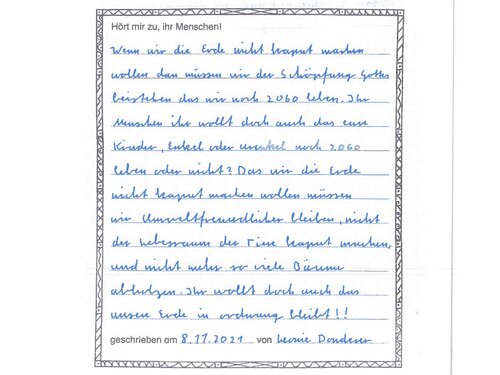 Hört mir zu, ihr Menschen!
Wenn wir die Erde nicht kaput machen
wollen dan müssen wir der Schöpfung Gottes
beistehen das wir noch 2060 leben. Ihr
Menschen ihr wollt doch auch das eure
Kinder, Enkel oder urenkel noch 2060
leben oder nicht? Das wir die Erde
nicht kaput machen wollen müssen
wir Umweltfreundlicher bleiben, nicht
der Lebesraum der Tiere kaput machen,
und nicht mehr so viele Bäume
abholzen. Ihr wollt doch auch das
unsere Erde in ordnung bleibt!!
geschrieben am 8.11.2021 von Leonie Donderer